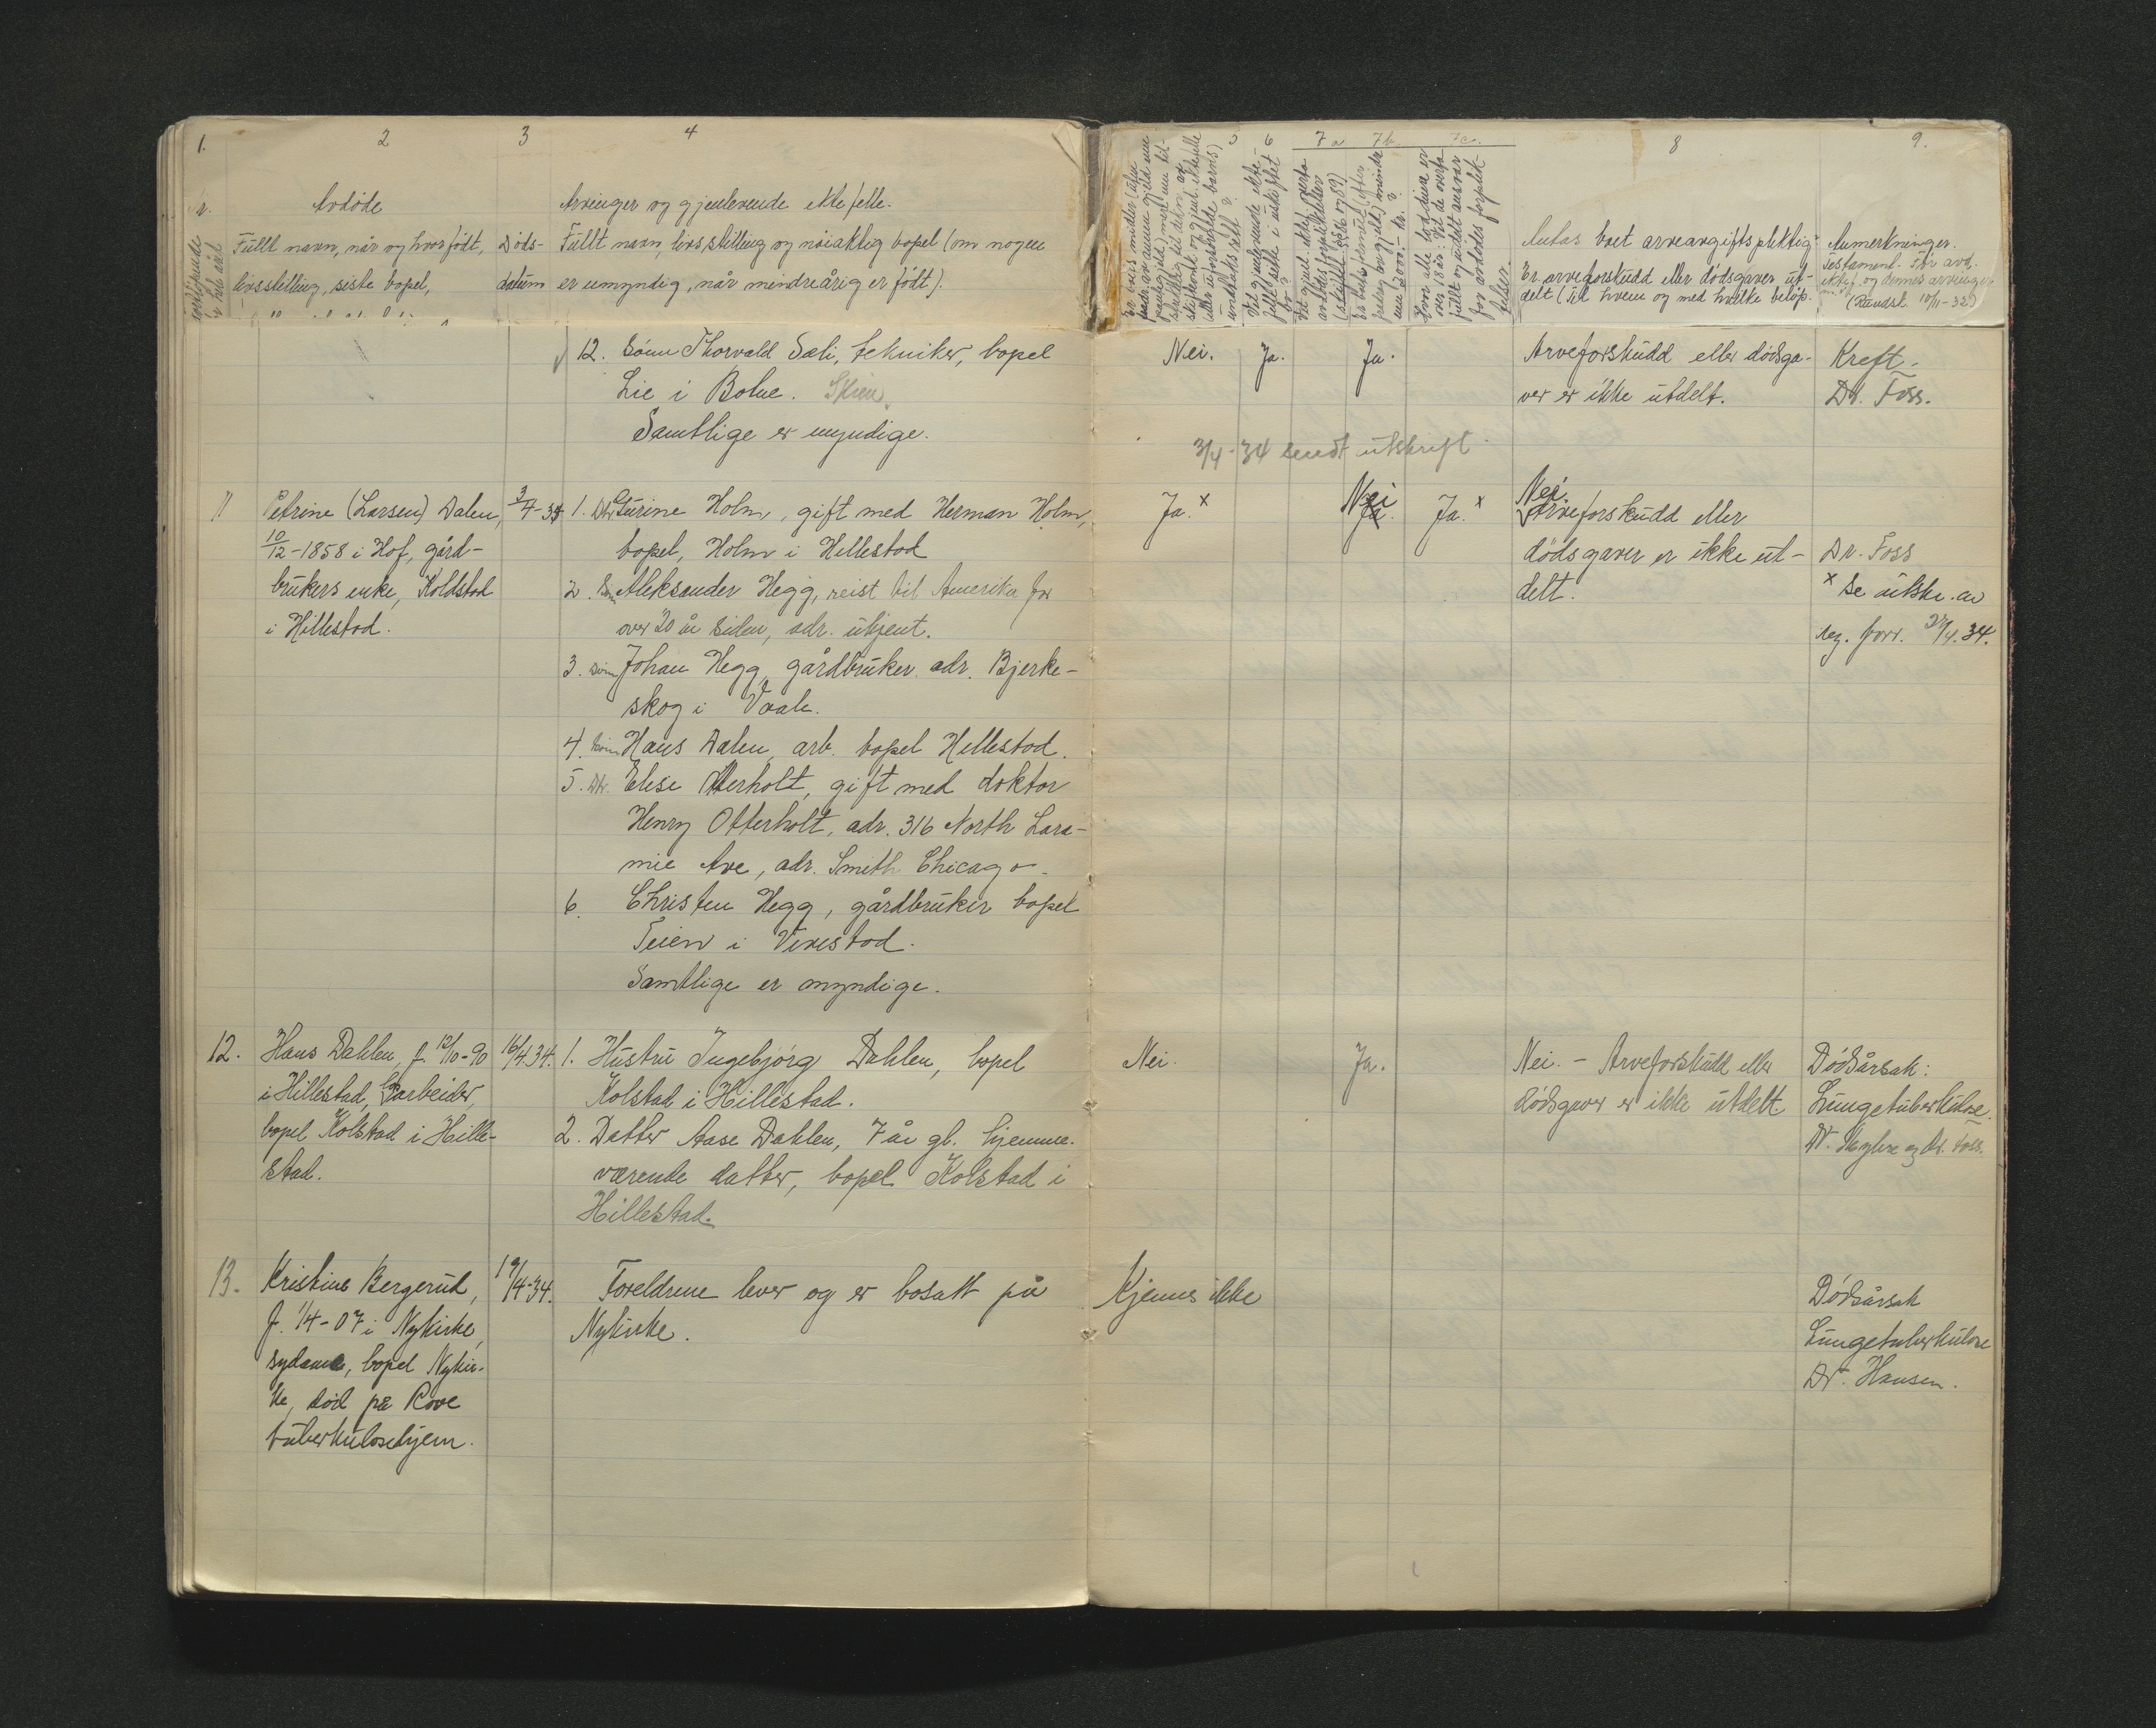 1.
2
3
4
Avdöde
Fullt navn, når og hvor födt,
livsstilling, siste bopel,
Döds-
datum
Arvinger og gjenlevende ektefelle.
Fullt navn, livsstilling og nöiaktig bopel (om nogen
er umyndig, når mindreårig er födt).
12. Sönn Thorvald Sæli, tekniker, bopel
Lie i Bolue. Skien.
Samtlige er myndige.
11
Petrine (Larsen) Dalen,
10/12-1858 i Hof, gård-
brukers enke, Koldstad
i Hillestad.
3/4-34
1. Dtr. Turine Holm, gift med Herman Holm,
bopel, Holm i Hillestad
2. Sön Aleksander Hegg, reist til Amerika for
over 20 år siden, adr. ukjent.
3. sön Johan Hegg, gårdbruker adr. Bjerke-
skog i Vaale.
4. sön Hans Dalen, arb. bopel Hillestad.
5. Dtr. Elise Otterholt, gift med doktor
Henry Otterholt, adr. 316 North Lara-
mie Ave, adr. Smith Chicago.
6. Christen Hegg, gårdbruker bopel
Teien i Vivestad.
Samtlige er myndige.
12.
Hans Dahlen, f. 12/10-90
i Hillestad, Garbeider,
bopel Kolstad i Hille-
stad.
16/4.34.
1. Hustru Ingebjörg Dahlen, bopel
Kolstad i Hillestad.
2. Datter Aase Dahlen, 7 år gl. hjemme-
værende datter, bopel Kolstad i
Hillestad.
13.
Kristine Bergerud,
f. 1/4-07 i Nykirke,
sydame, bopel Nykir-
ke, död på Rove
tuberkulosehjem.
19/4-34.
Foreldrene lever og er bosatt på
Nykirke.
6
7a
7b
7c.
8
9.
Antas boet arveavgiftspliktig
Er arveforskudd eller dödsgaver ut-
delt (til hvem og med hvilke belöp.
Anmerkninger.
(Rundskr. 10/11-32)
Nei.
Ja.
Ja.
Arveforskudd eller dödsga-
ver er ikke utdelt.
Kreft.
Dr. Foss.
3/4-34 sendt utskrift
Ja. x
Nei
Ja.
Ja. x
Nei.
Arveforskudd eller
dödsgaver er ikke ut-
delt.
Dr. Foss
x Se utskr. av
reg. forr. 27/4.34.
Nei.
Ja.
Nei. - Arveforskudd eller
dödsgaver er ikke utdelt
Dödsårsak:
Lungetuberkulose.
Kjennes ikke
Dödsårsak
Lungetuberkulose
Dr. Hansen.